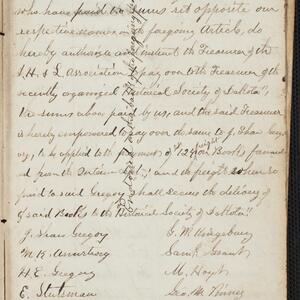 who have paid the sums set opposite our
respective names, in the forgoing Article, do
hereby authorize and instruct the Treasurer of the
S. H. & L Association to pay over to the Treasurer of the
recently organized Historical Society of Dakota",
the sums above paid by us, and the said Treasurer
is hereby empowered to pay over the same to J. Shaw Greg
ory, to be applied to the payment of $124 freight on Books forward
ed from the Interior, and the people so
paid to said Gregory shall secure the delivery of
of said Books to the Historical Society of Dakota".
J. Shaw Gregory G. W. Kingsbury
M. K. Armstrong Saml Grant
H. E. Gregory M. Hoyt
E. Stutsman Geo. M. Pinney